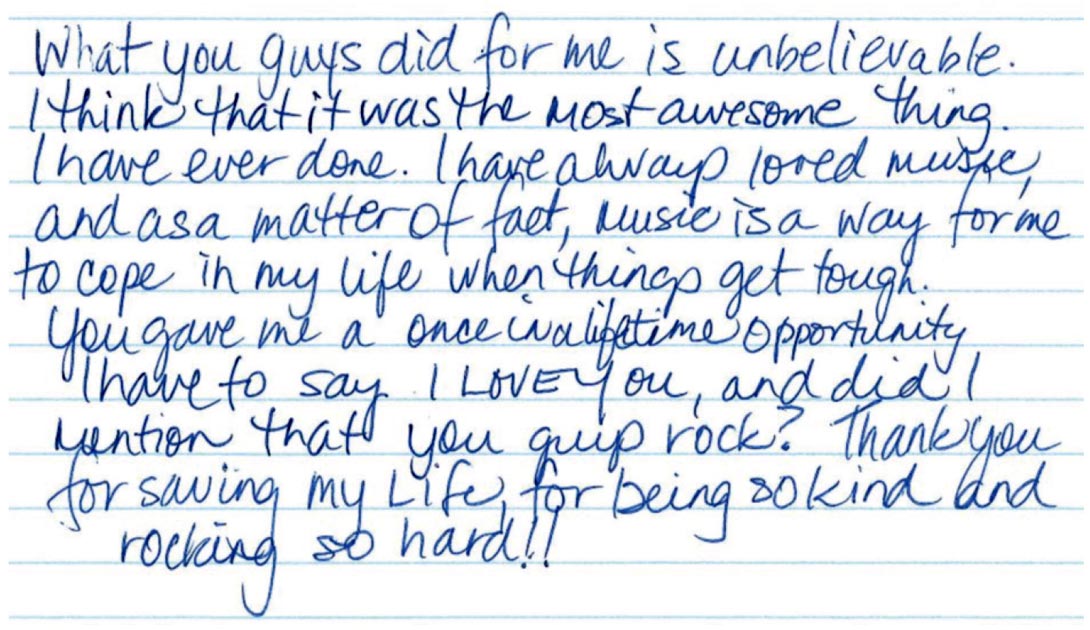 What you guys did for me is unbelievable.
I think that it was the most awesome thing.
I have ever done. I have always loved music,
and as a matter of fact, music is a way for me
to cope in my life when things get tough.
You gave me a once in a lifetime opportunity
I have to say I LOVE YOU, and did I
mention that you guys rock? Thank you
for saving my Life, for being so kind and
rocking so hard!!